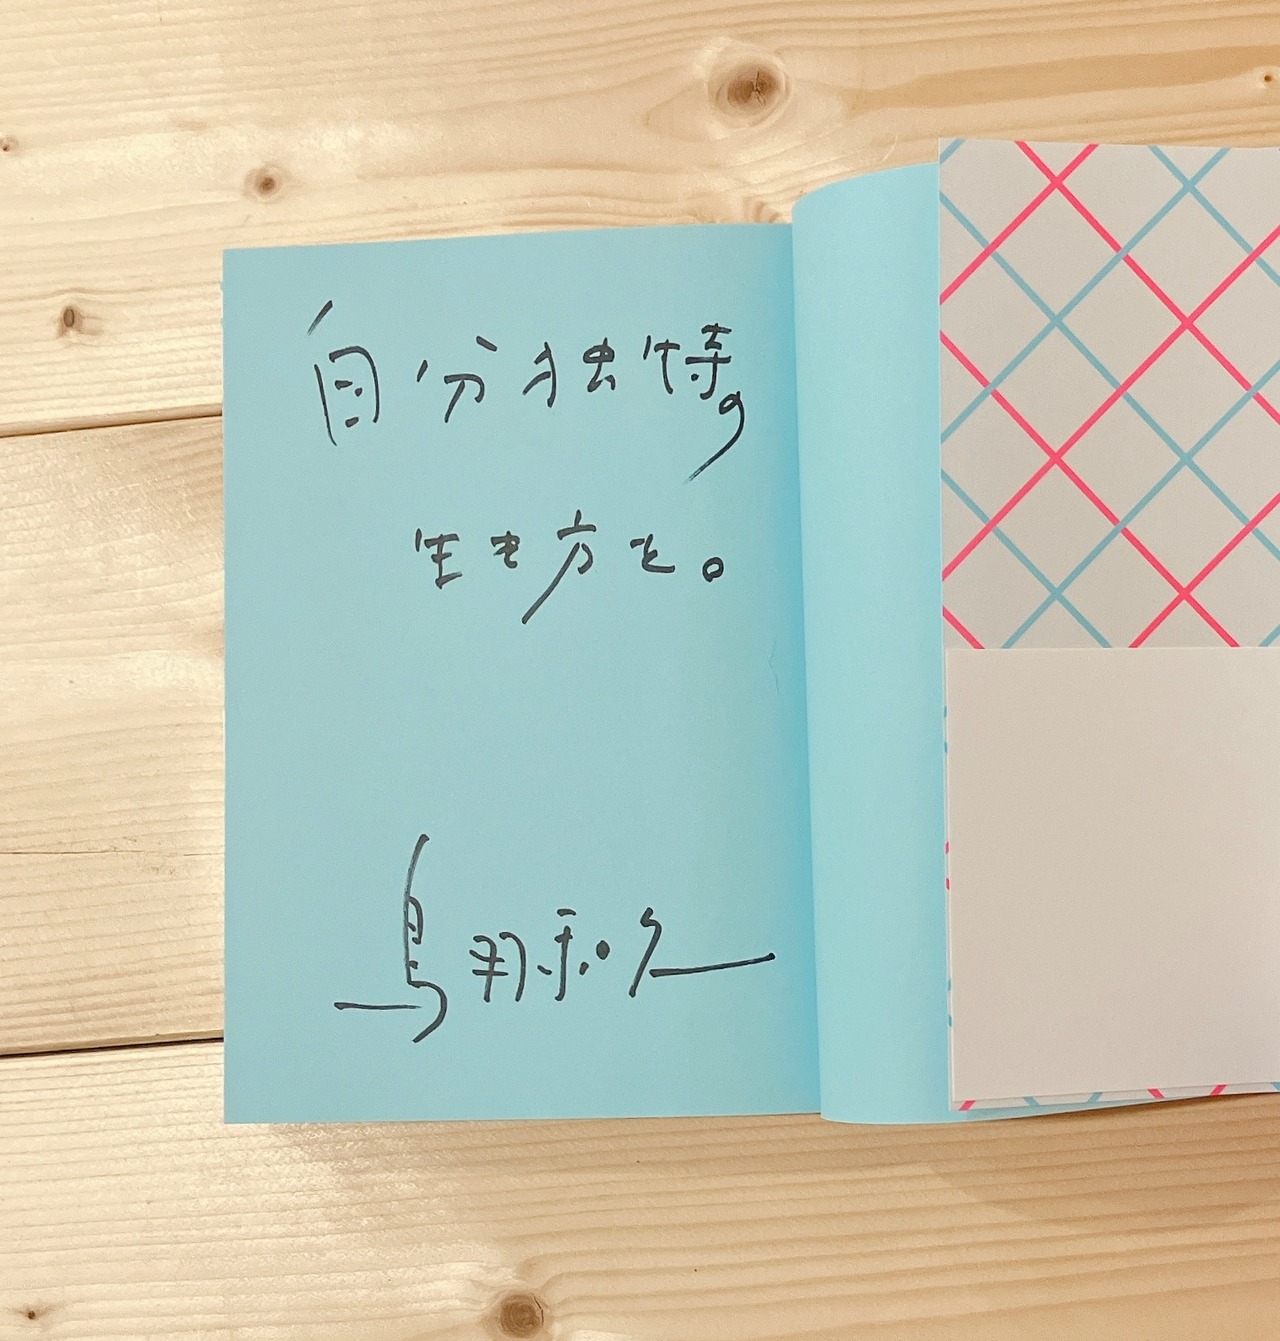 自分独特の
生き方を。
鳥羽和久